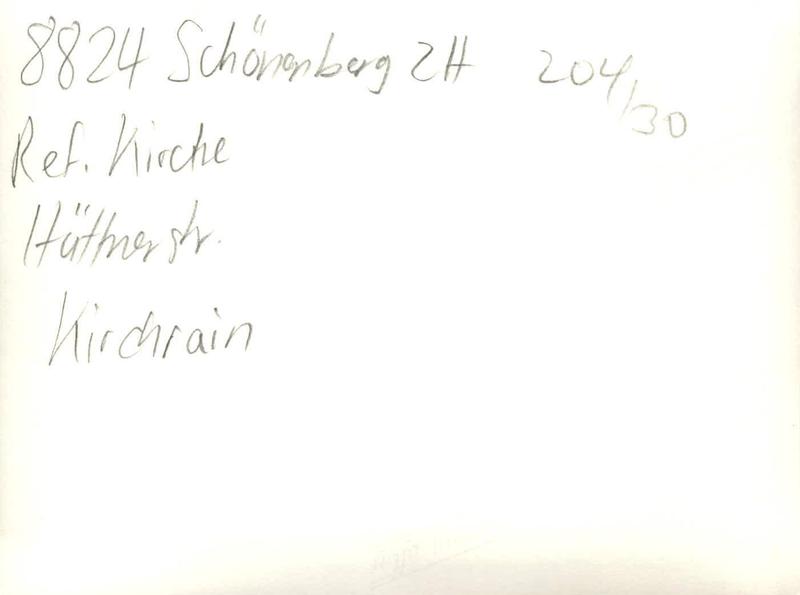 8824 Schönenberg ZH 204/30
Ref. Kirche
Hüttnerstr.
Kirchrain